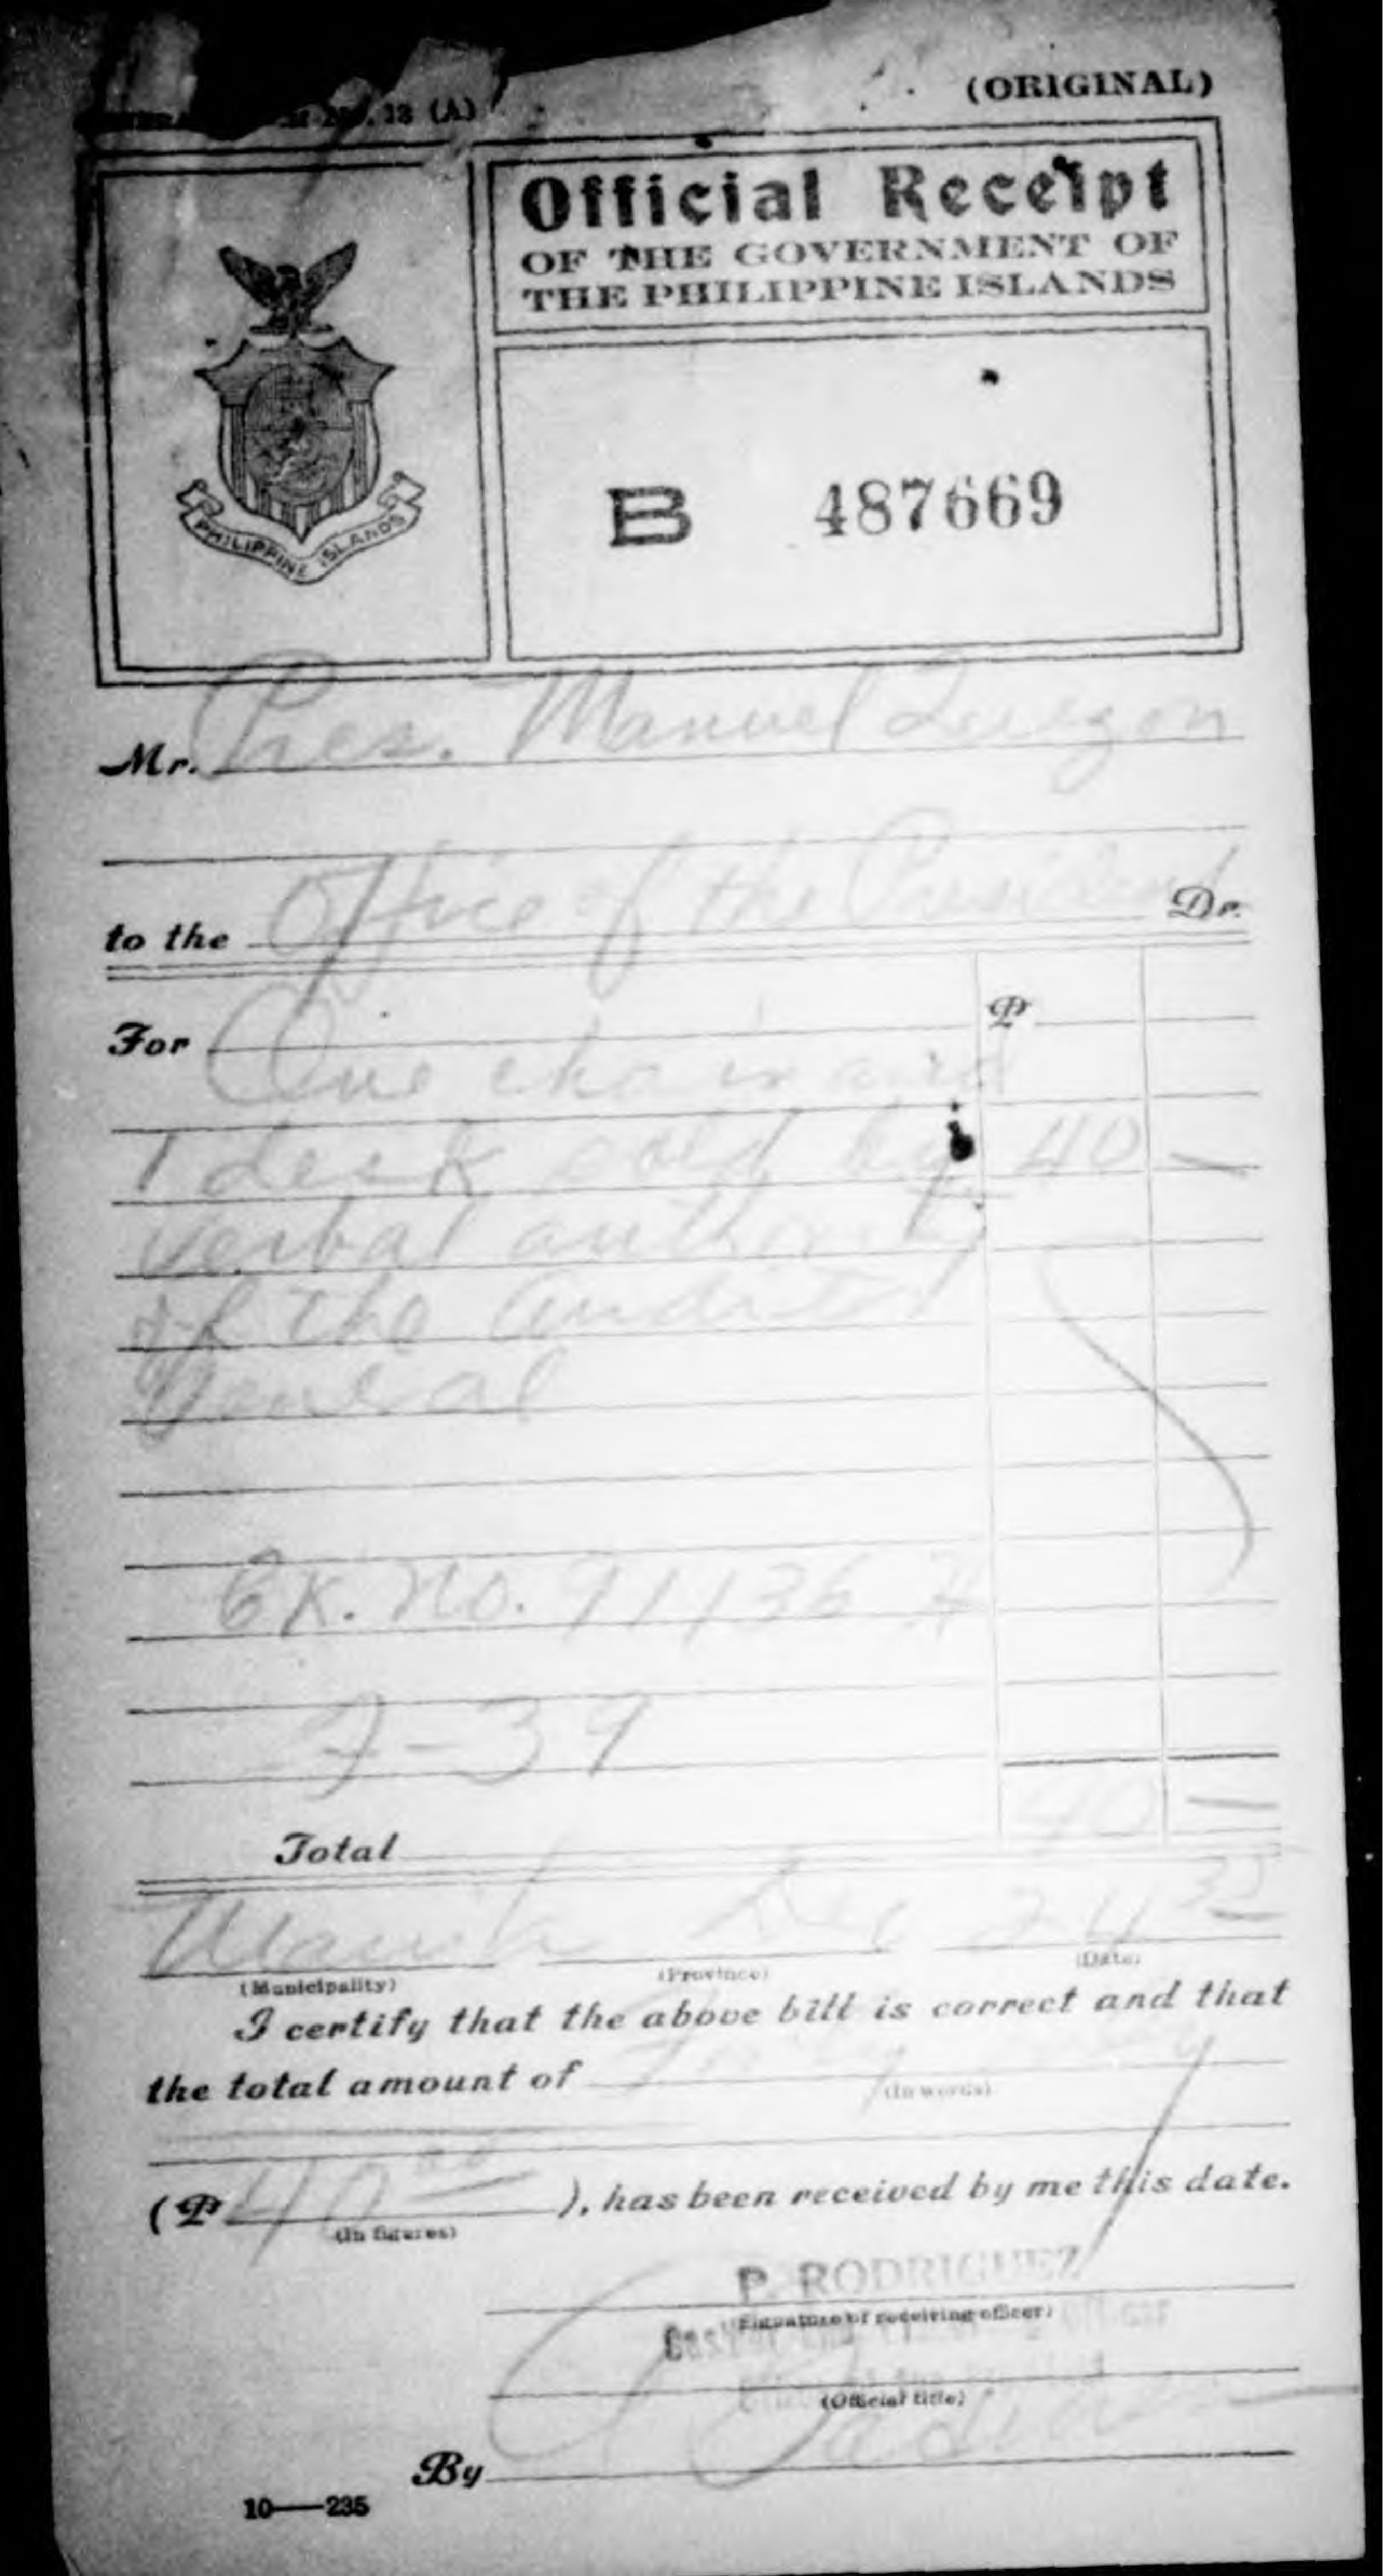 13 (A)
(ORIGINAL)
Official Receipt
OF THE GOVERNMENT OF
THE PHILIPPINE ISLANDS
PHILIPPINE ISLANDS
B 487669
Mr. Pres. Manuel Quezon
to the Office of the President Dr.
For ₱
One chair and
1 desk sold by 40 —
verbal authority
of the Auditor
General
Ck. No. 91136
7-39
Total 40 —
Manila Dec 24 35
(Municipality) (Province) (Date)
I certify that the above bill is correct and that
the total amount of
(In words)
(₱ 40 00 ), has been received by me this date.
(In figures)
P. RODRIGUEZ
(Signature of receiving officer)
(Official title)
By
10—235